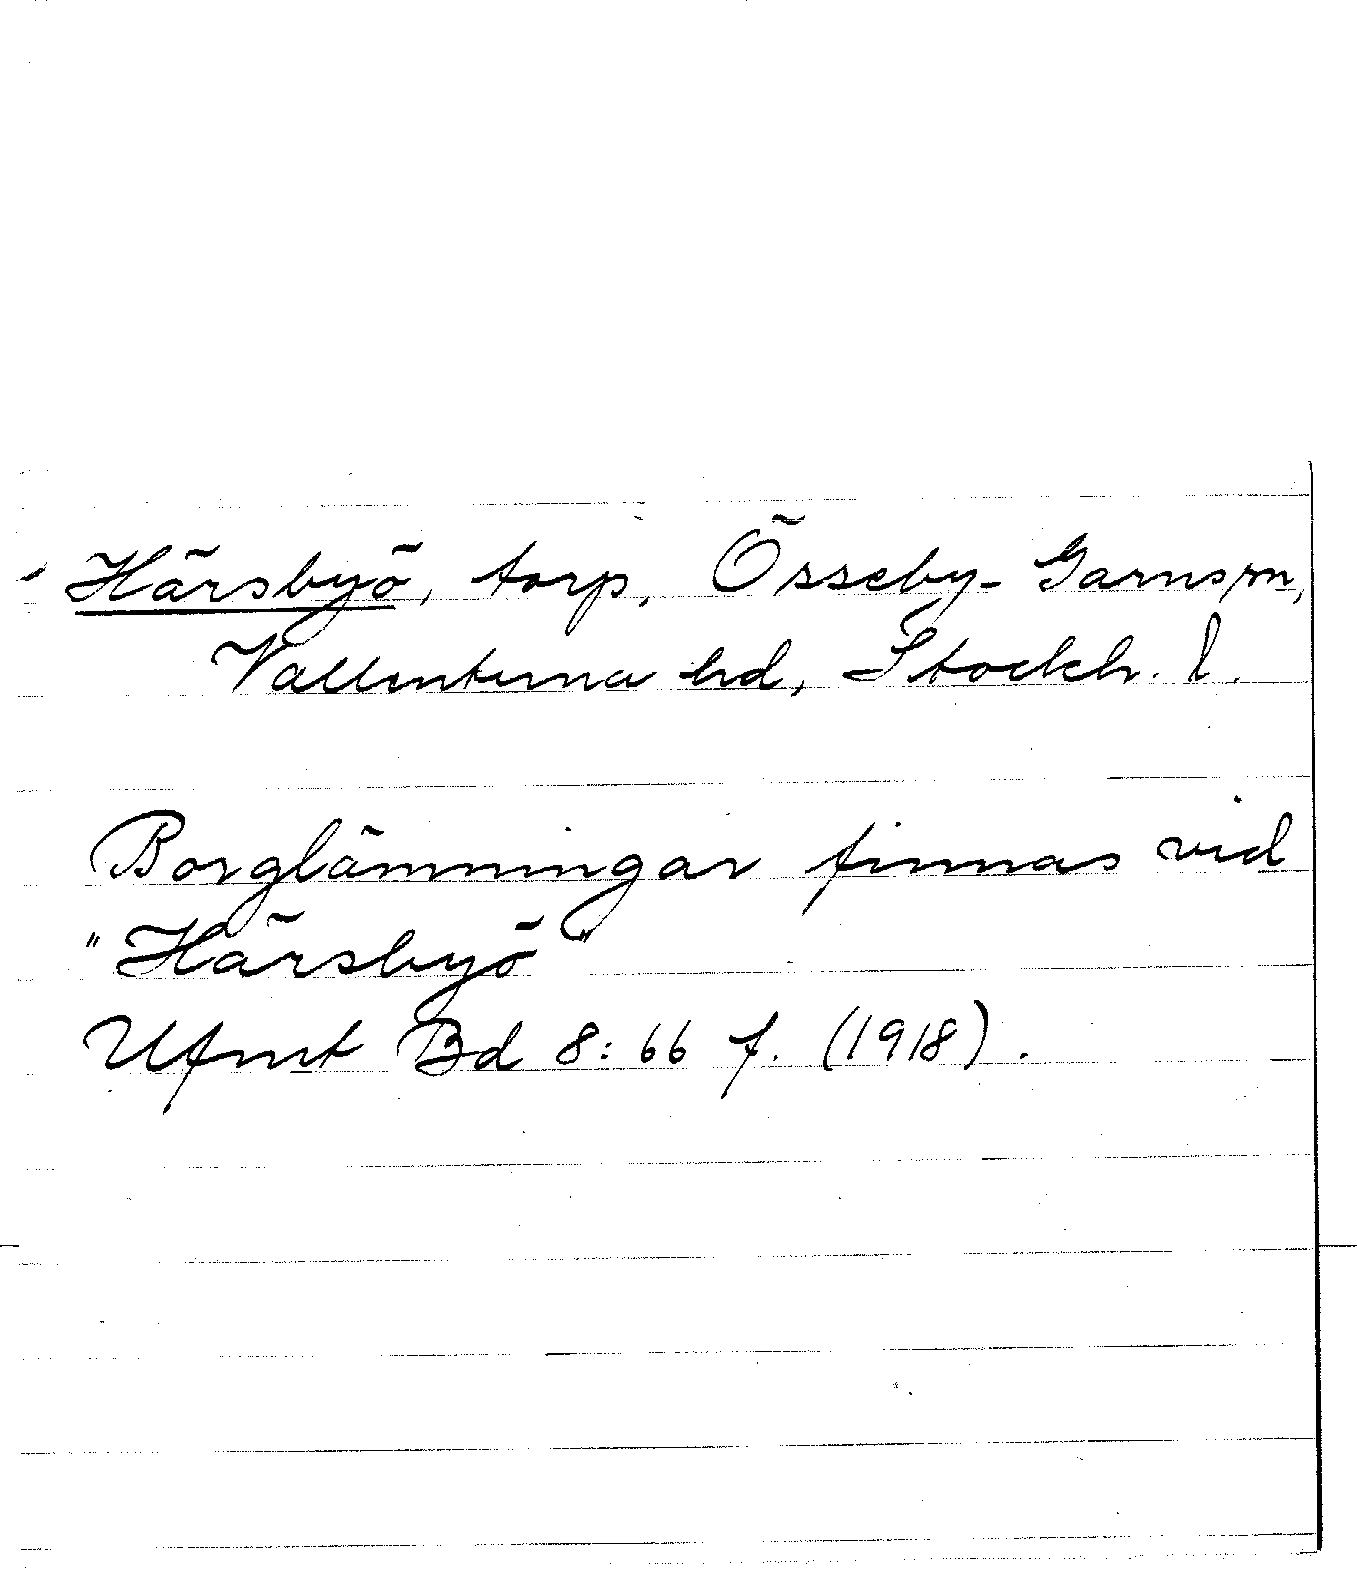 Härsbyö, torp, Össeby-Garns sn,
Vallentuna hd, Stockh. l.
Borglämningar finnas vid
"Härsbyö"
Ufmt Bd 8: 66 f. (1918).